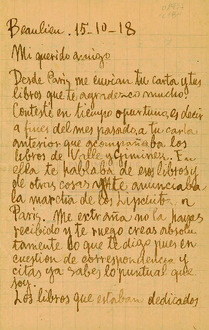 Beaulieu. 15-10-18
Mi querido amigo
Desde París me envían tu carta y tus
libros que te agradezco mucho.
Contesté en tiempo oportuno, es decir
a fines del mes pasado, a tu carta
anterior que acompañaba los
libros de Valle y Giménez. En
ella te hablaba de esos libros y
de otras cosas y te anunciaba
la marcha de los Lipchitz a
París. Me extraña no la hayas
recibido y te ruego creas absolu-
tamente lo que te digo pues en
cuestión de correspondencia y
citas ya sabes lo puntual que
soy.
Los libros que estaban dedicados